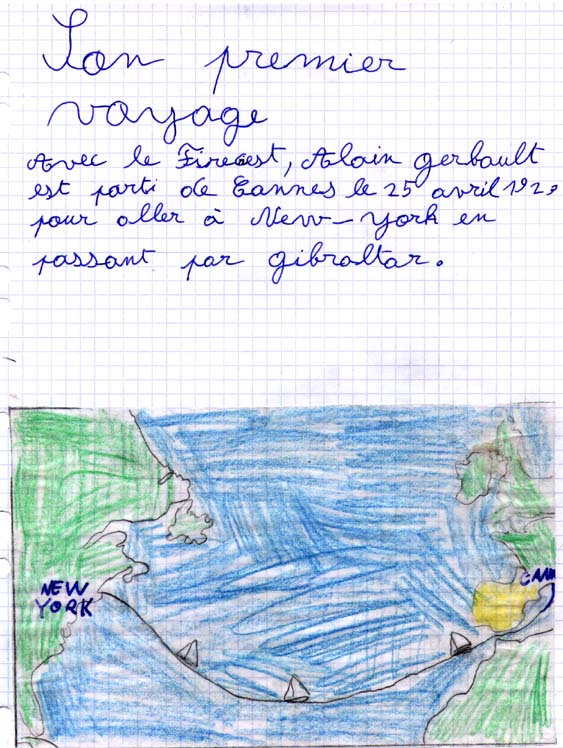 Son premier
voyage
Avec le Firecest, Alain gerbault
est parti de Cannes le 25 avril 192
pour aller à New-York en
passant par gibraltar.
NEW
YORK
CANN